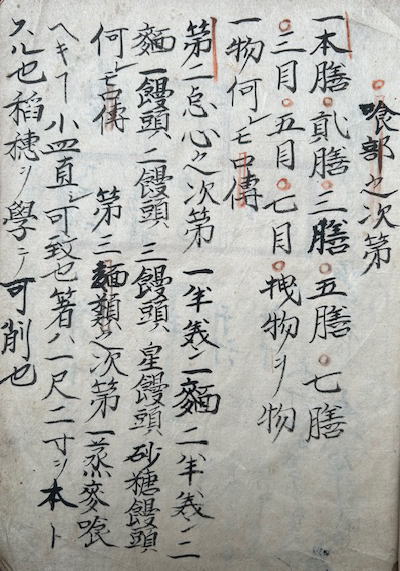 喰部之次第
一本膳・貳膳・三膳・五膳・七膳
・三目・五目・七目・拽物ヲ物
一物何レモ口傳
第二忌心之次第 一半義ニ一麺 二半義ニ二
麺 一饅頭 二饅頭 三饅頭 星饅頭 砂糖饅頭
何レモ口傳 第三麺類之次第 一蒸麥喰
ヘキヿ小皿直シ可致也箸ハ一尺二寸ヲ本ト
スル也稻穗ヲ學テ可削也